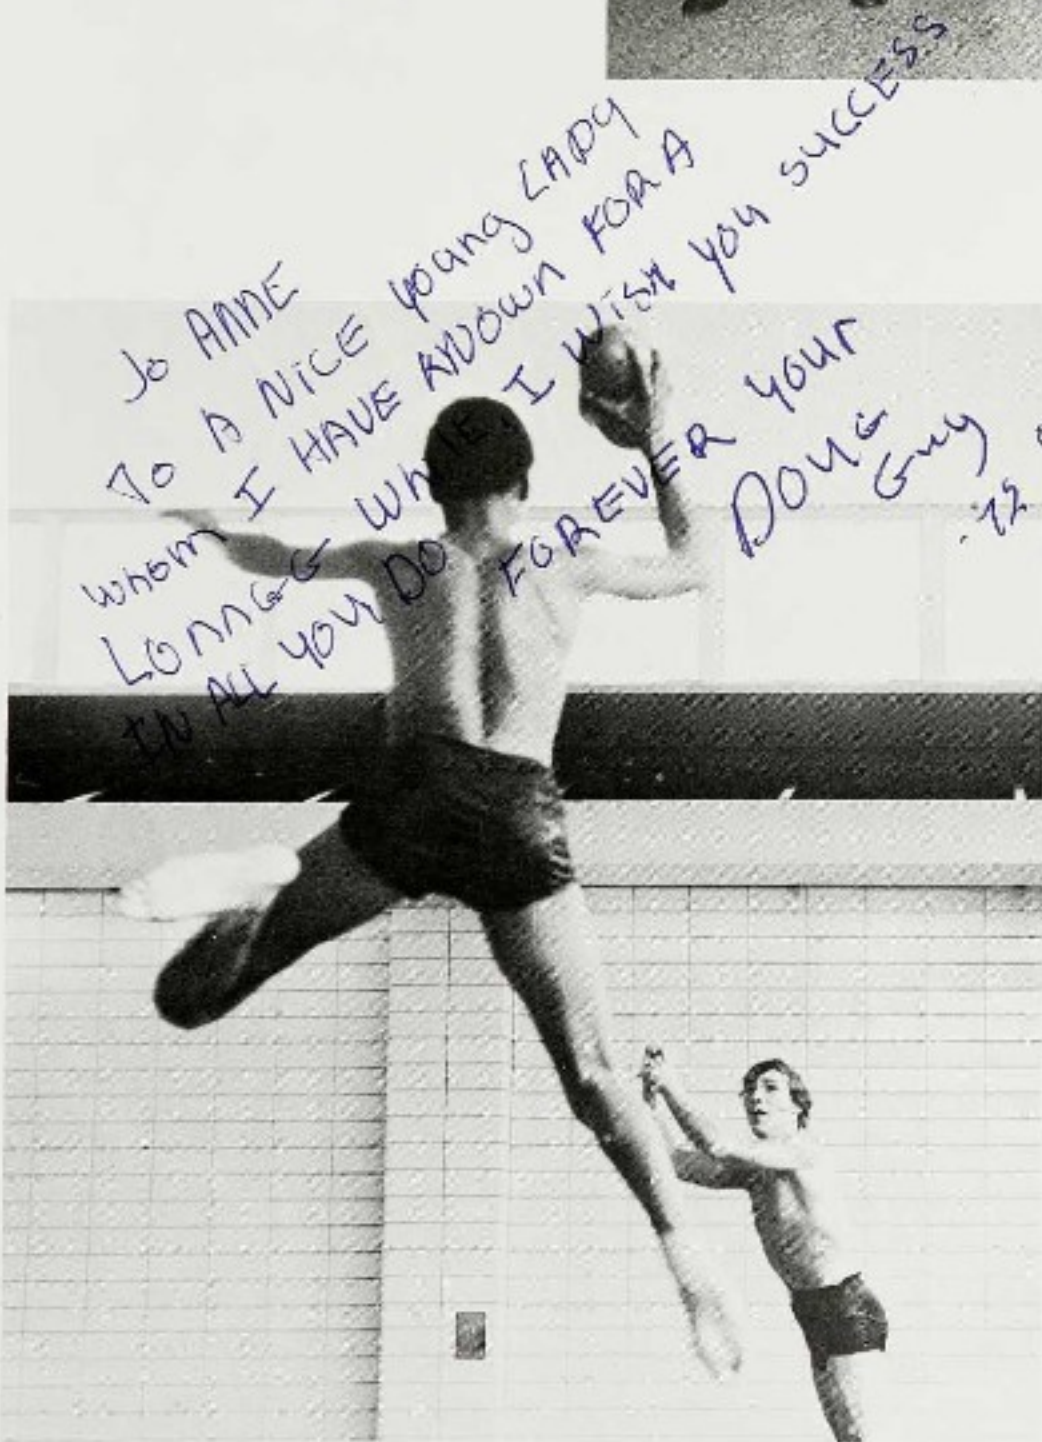 Jo ANNE
To A NiCE young LADY
whom I HAVE KNOWN FOR A
LONNGG WhiLE, I WiSH you SUCCESS
IN ALL YOU DO FOREVER your
DOUG
Guy